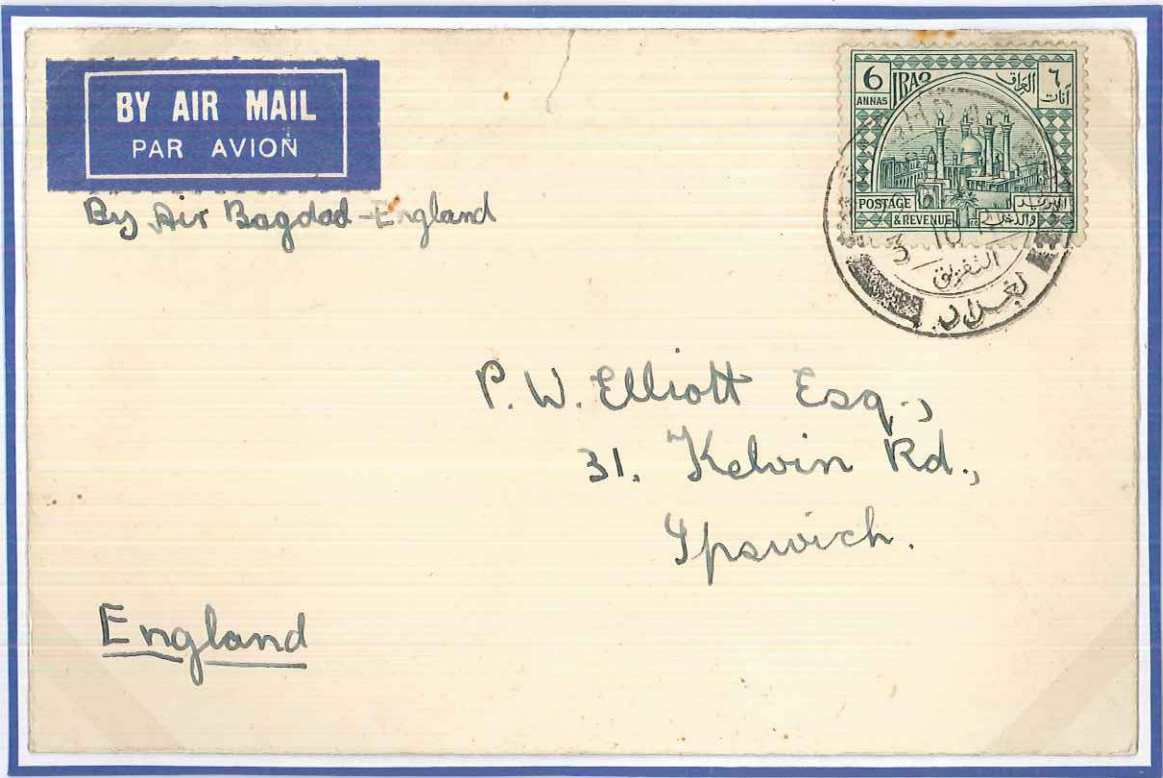 BY AIR MAIL
PAR AVION
By Air Bagdad-England
6 IRAQ العراق ٦
ANNAS آنات
POSTAGE البريد
& REVENUE والدخل
3 10
التفريق
بغداد
P. W. Elliott Esq.,
31. Kelvin Rd.,
Ipswich.
England